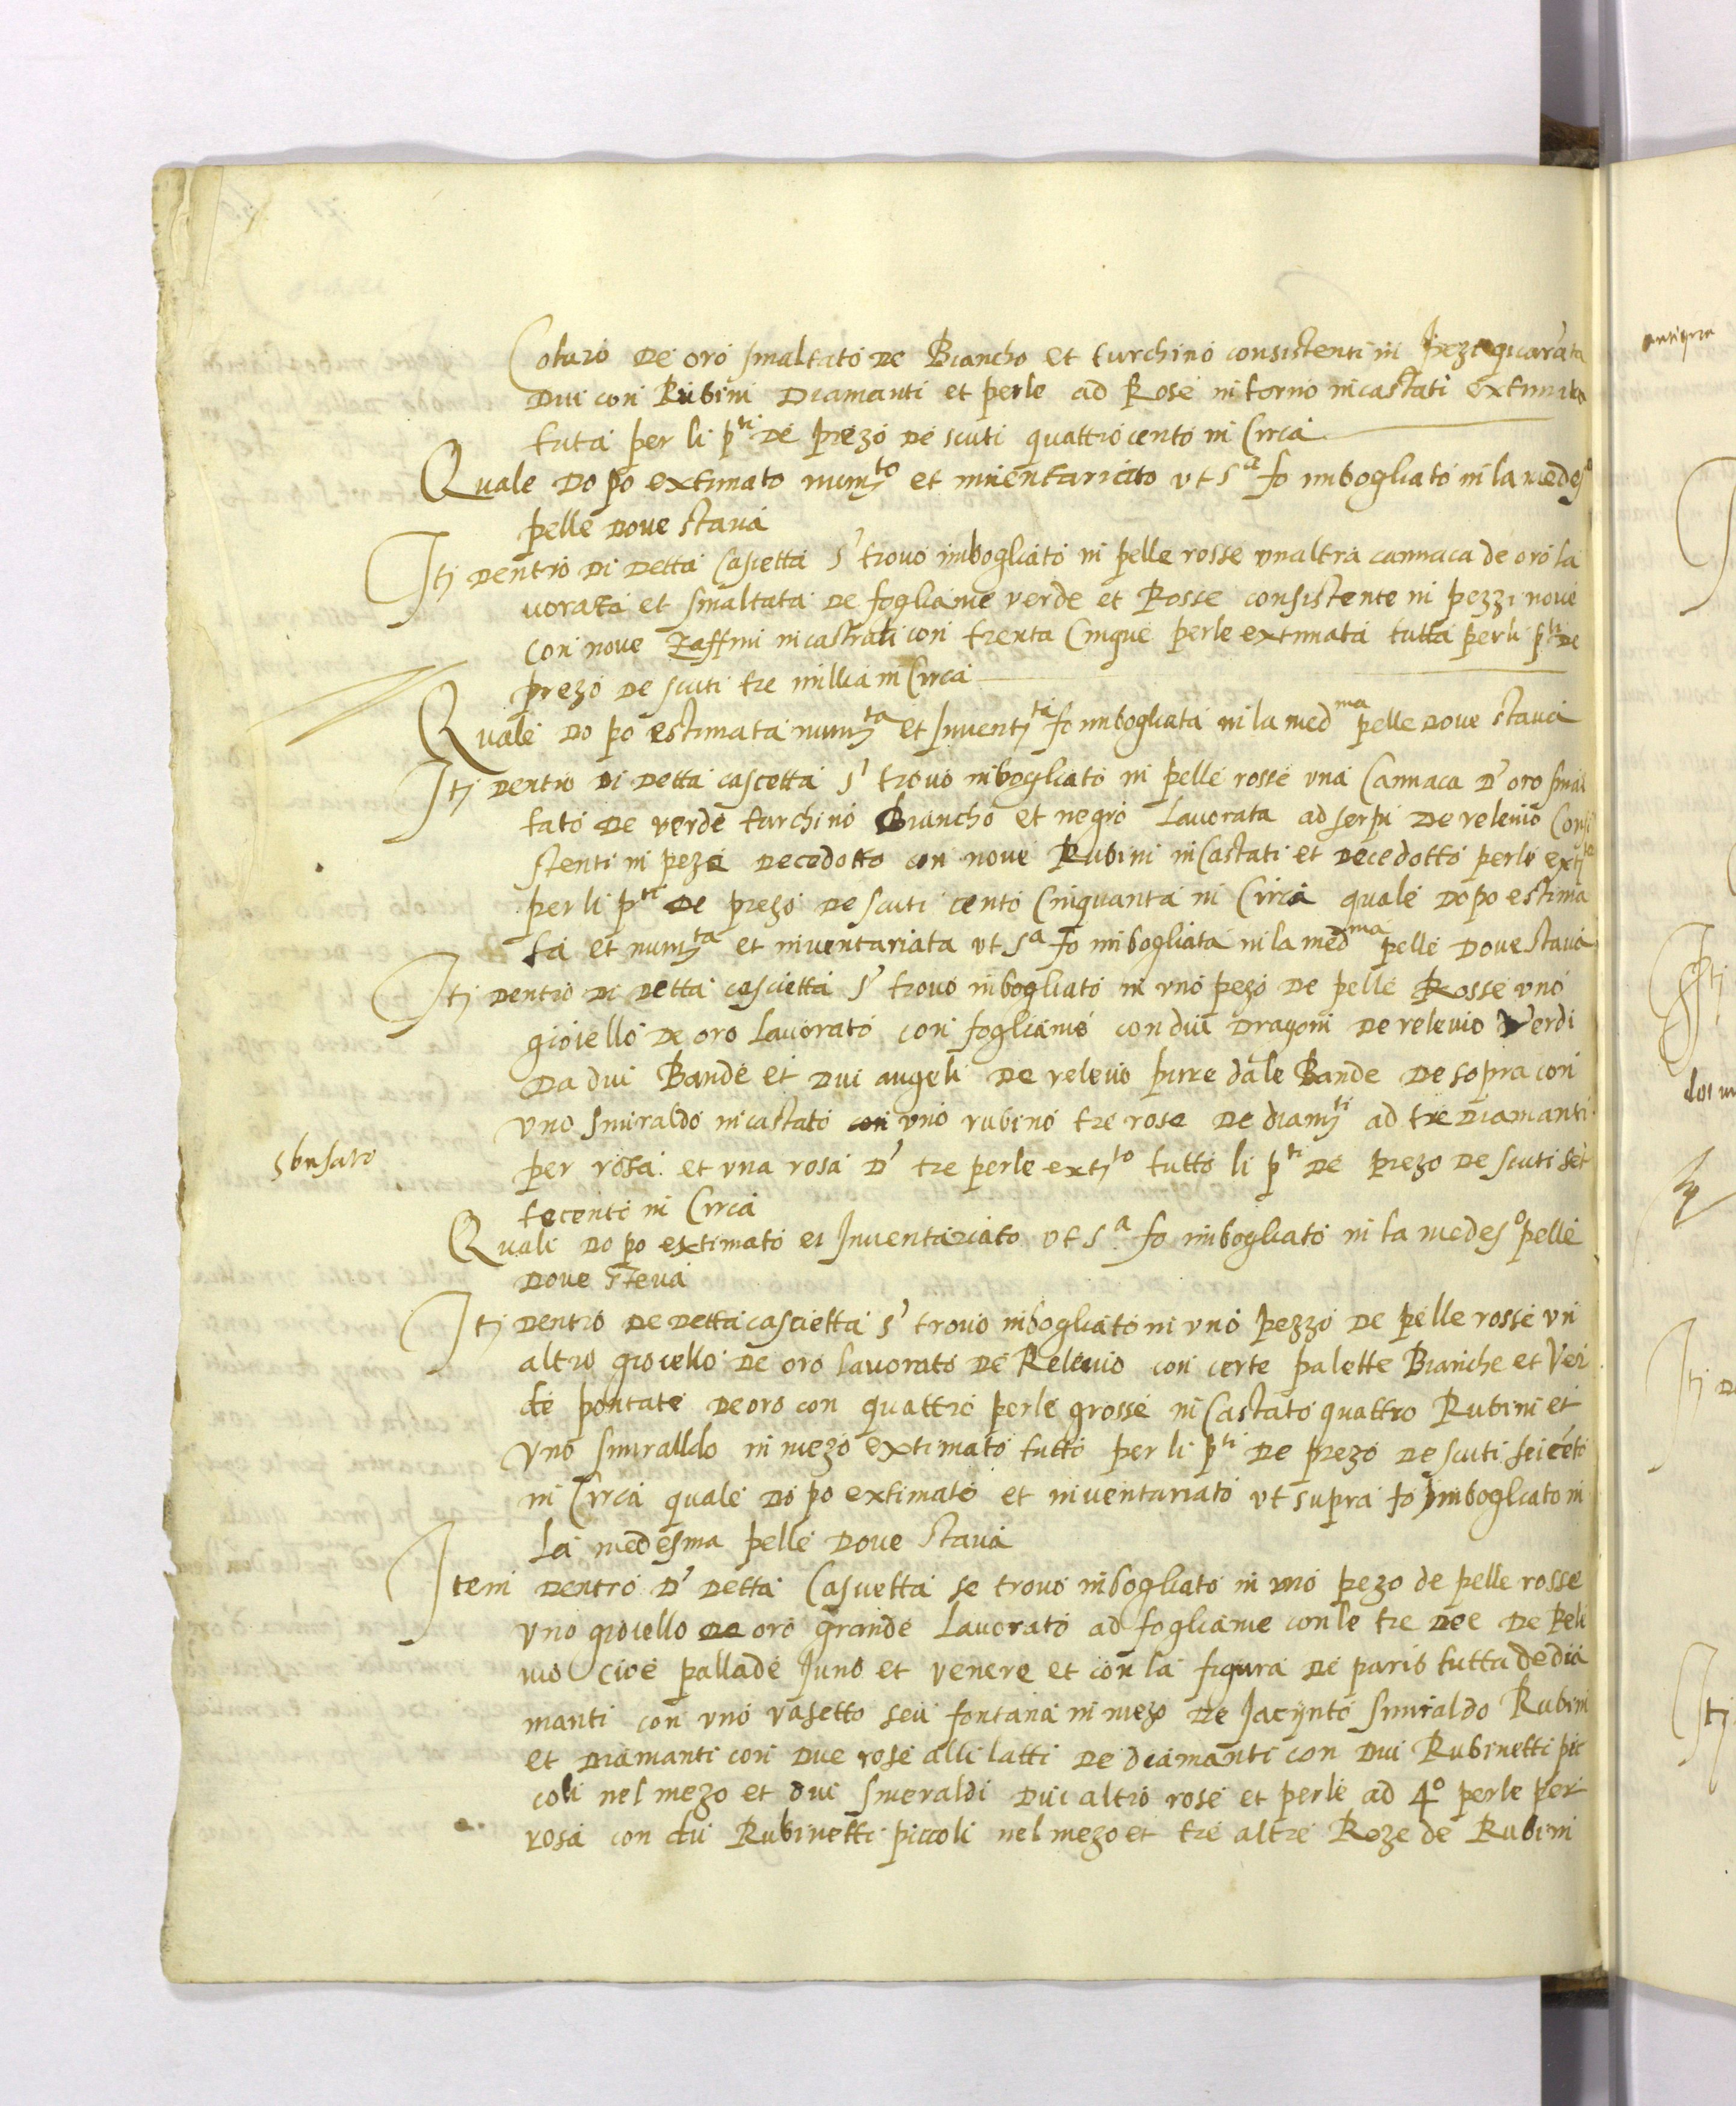 Cotaro de oro smaltato de Biancho et turchino consistenti in pezi quaranta
dui con Rubini Diamanti et perle ad Rose intorno incastati extimata
tuta per li p^ti de prezo de scuti quattrocento in Circa
Quale dopo extimato num^to et inventariato ut s^a fo imbogliato in la medes^o
pelle dove stava
Itj dentro di detta Cascetta s' trovo imbogliato in pelle rosse unaltra cannaca de oro la
vorata et smaltata de fogliame verde et Rosse consistente in pezzi nove
con nove Zaffini incastrati con trenta Cinque perle extimata tutta per li p^ti de
prezo de scuti tre millia in Circa
Quale dopo estimata num^ta et Inventj^ta fo imbogliata in la med^ma pelle dove stava
Itj dentro di detta cascetta s' trovo inbogliato in pelle rosse una Cannaca d' oro smal
tato de verde turchino Biancho et negro Lavorata ad serpi de relevio Consi
stenti in peze decedotto con nove Rubini inCastati et decedotto perle extj^ta
per li p^ti de prezo de scuti cento Cinquanta in Circa quale dopo estima
ta et num^ta et inventariata ut s^a fo imbogliata in la med^ma pelle dove stava
Itj dentro di detta cascietta s' trovo inbogliato in uno pezo de pelle Rosse uno
gioiello de oro Lavorato con fogliame con dui Dragoni de relevio Verdi
da dui Bande et dui angeli de relevio purre dale Bande de sopra con
uno smiraldo incastato con uno rubino tre rose de diam^ti ad tre diamanti
sbusato
per rosa et una rosa d' tre perle extj^to tutto li p^ti de prezo de scuti set
tecento in Circa
Quale dopo estimato et Inventariato ut s^a fo imbogliato in la medes^o pelle
dove steva
Itj dentro de detta cascietta s' trovo inbogliato in uno pezzo de pelle rosse un
altro giovello de oro lavorato de Relevio con certe palette Bianche et Ver
de pontate de oro con quattro perle grosse inCastato quattro Rubini et
uno smiralldo in mezo extimato tutto per li p^ti de prezo de scuti seicēto
in Circa quale dopo extimato et inventariato ut supra fo imbogliato in
La medesma pelle dove stava
Item dentro d' detta Casuetta se trovo inbogliato in uno pezo de pelle rosse
uno giovello de oro grande Lavorato ad fogliame con le tre dee de Rele
vio cioe pallade Juno et venere et con la figura de paris tutta de dia
manti con uno vasetto seu fontana in mezo de Jacynto Smiraldo Rubini
et diamanti con due rose alli latti de diamanti con dui Rubinetti pic
coli nel mezo et dui smeraldi dui altro rose et perle ad 4^o perle per
rosa con dui Rubinetti piccoli nel mezo et tre altre Roze de Rubini